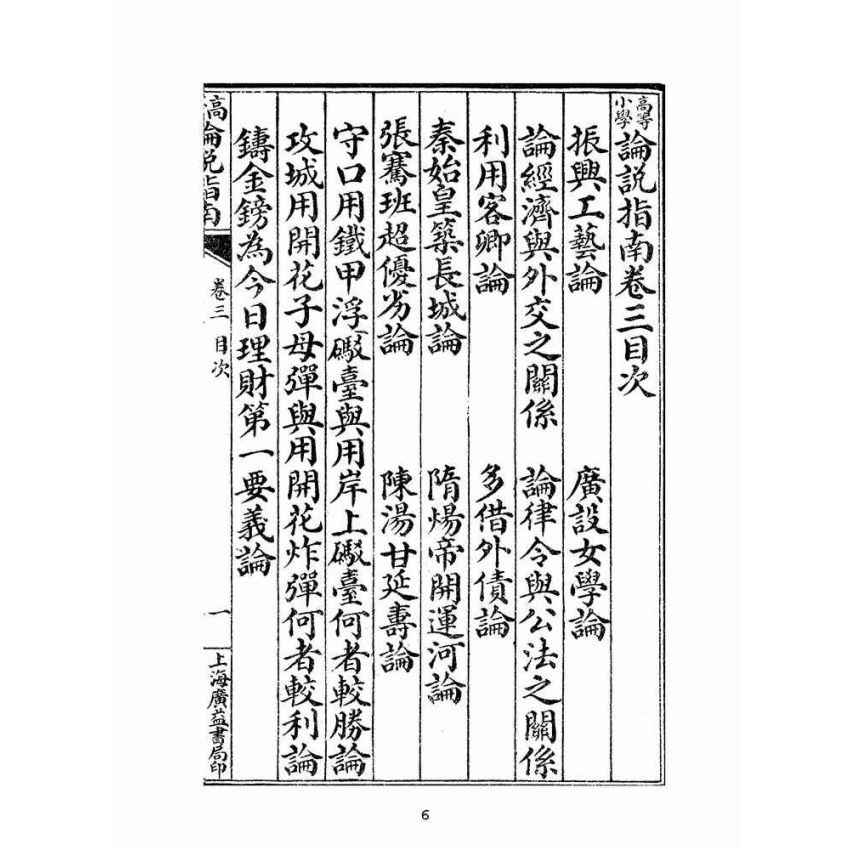 高等小學論說指南卷三目次
振興工藝論 廣設女學論
論經濟與外交之關係 論律令與公法之關係
利用客卿論 多借外債論
秦始皇築長城論 隋煬帝開運河論
張騫班超優劣論 陳湯甘延壽論
守口用鐵甲浮礮臺與用岸上礮臺何者較勝論
攻城用開花子母彈與用開花炸彈何者較利論
鑄金鎊為今日理財第一要義論
論說指南 卷三 目次 一 上海廣益書局印
6